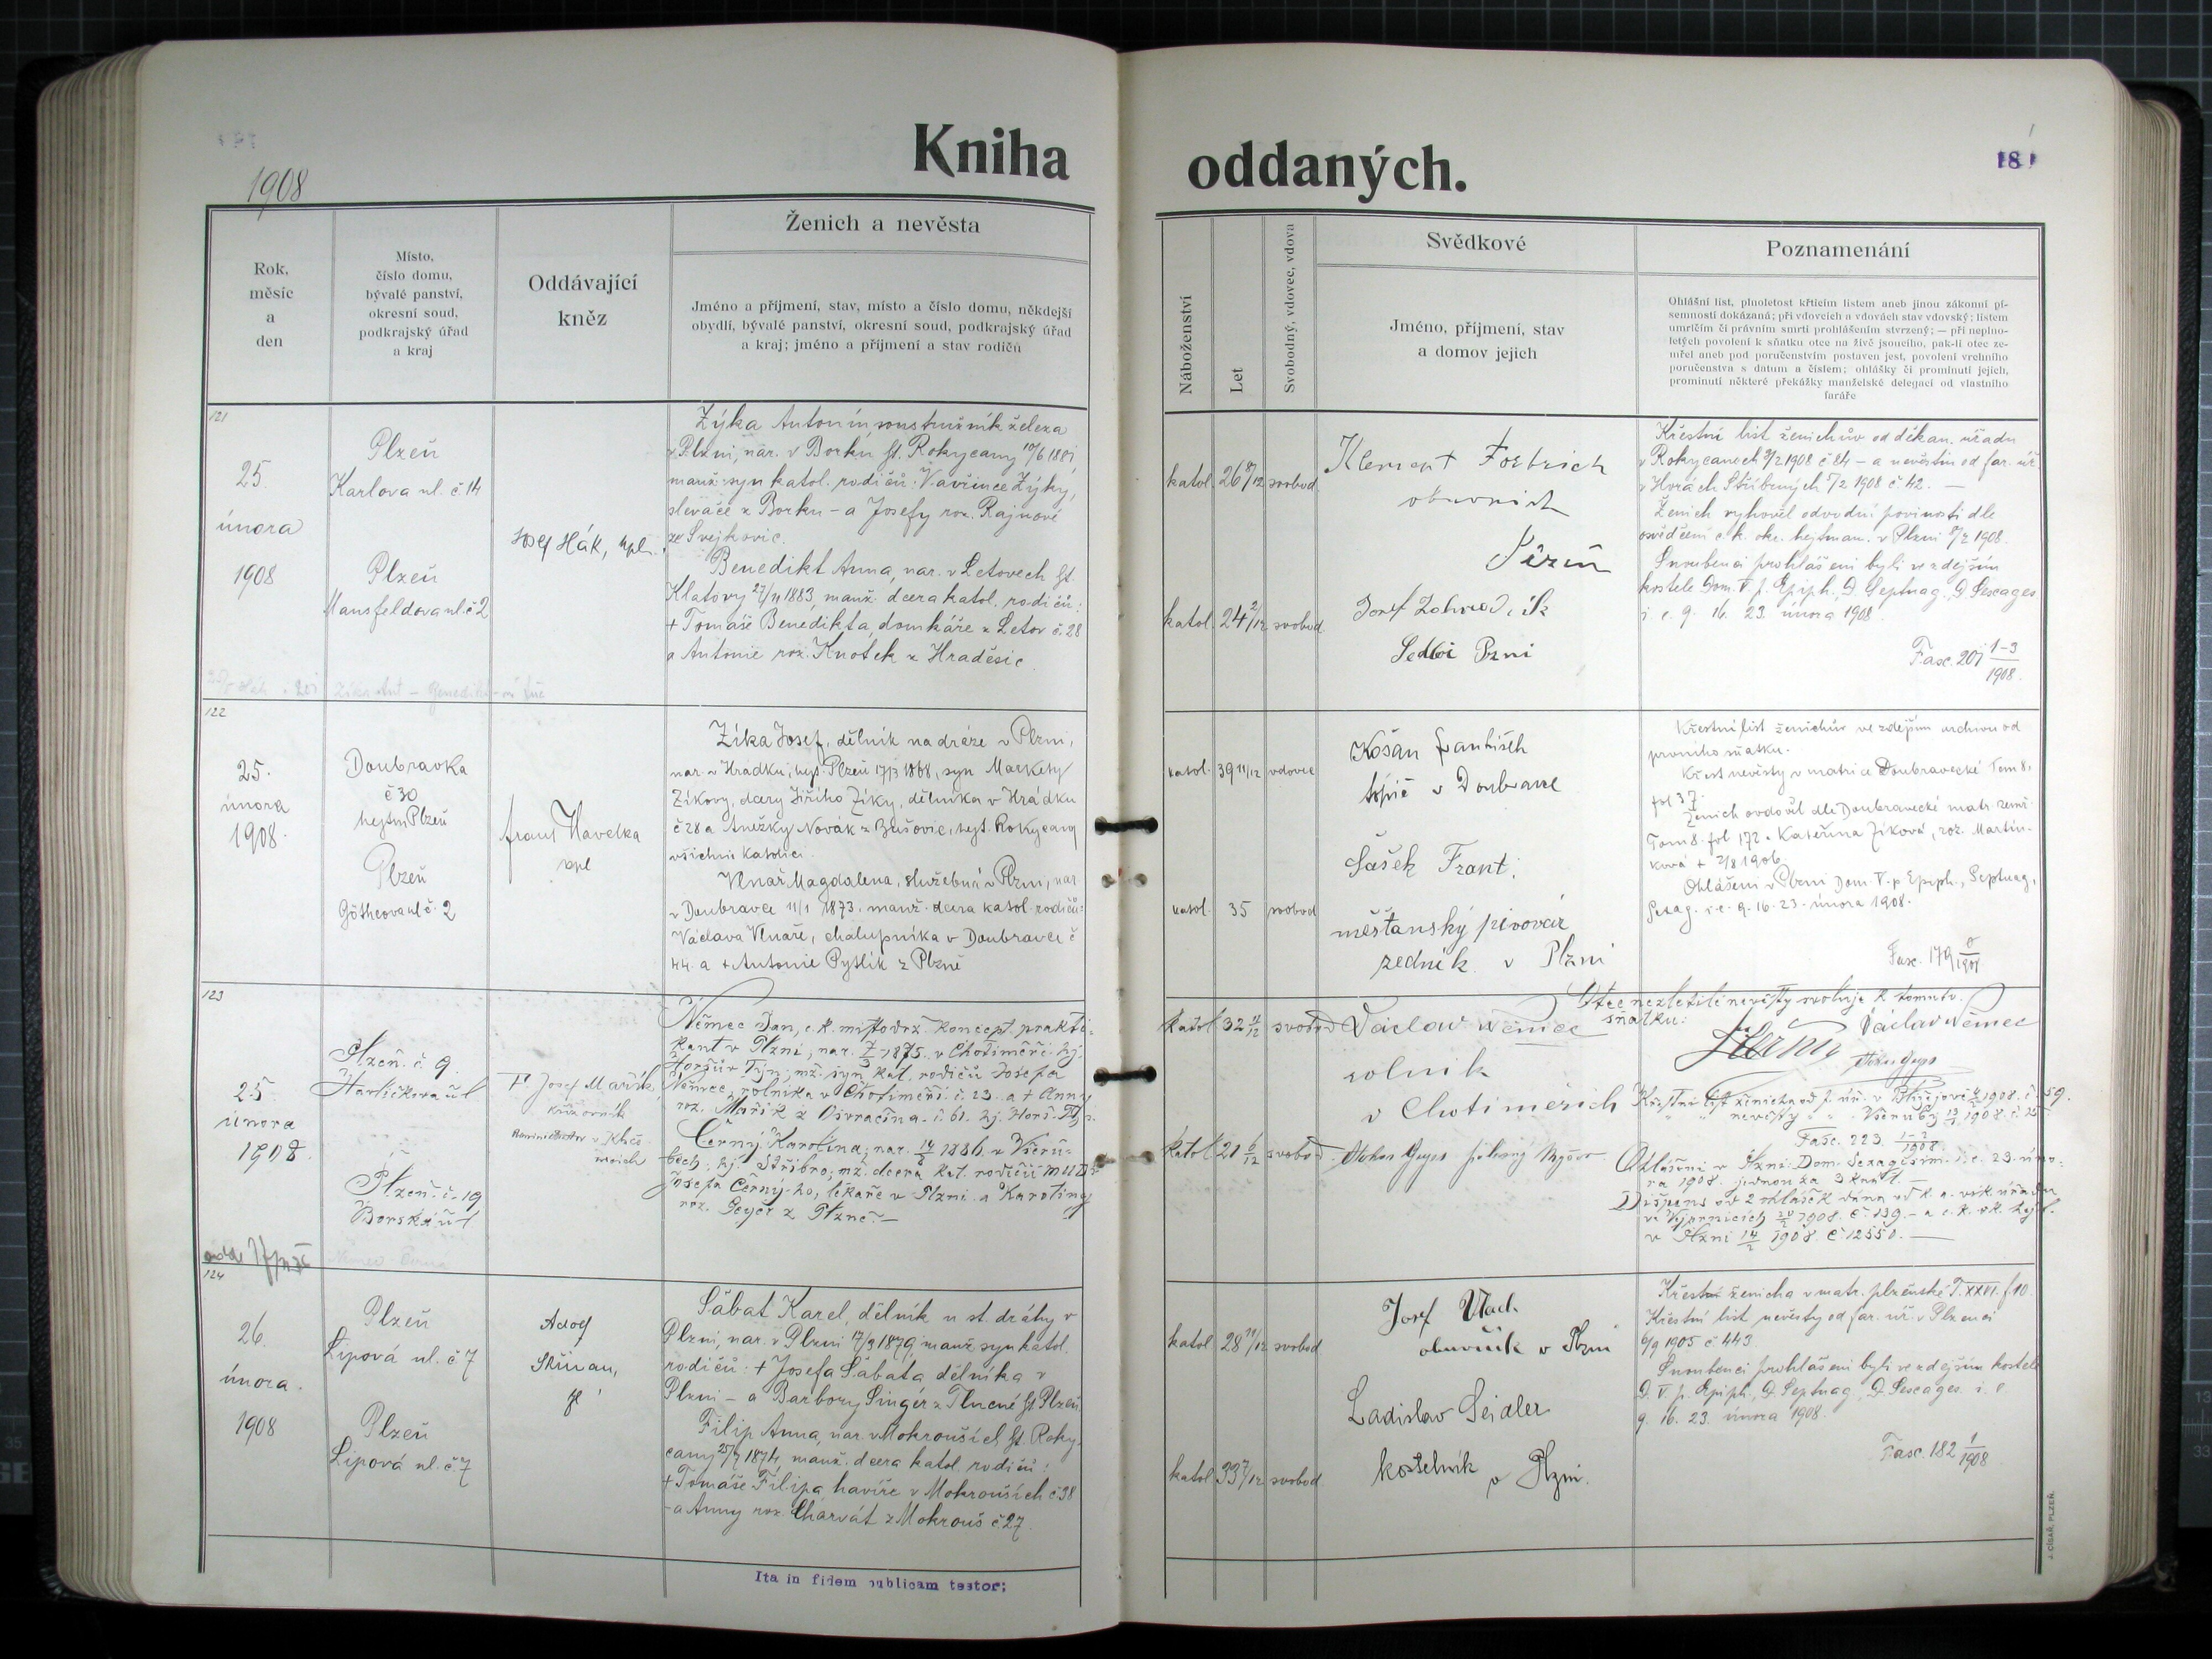 Kniha oddaných.
1908
181
Rok, měsíc a den
Místo, číslo domu, bývalé panství, okresní soud, podkrajský úřad a kraj
Oddávající kněz
Ženich a nevěsta
Jméno a příjmení, stav, místo a číslo domu, někdejší
obydlí, bývalé panství, okresní soud, podkrajský úřad
a kraj; jméno a příjmení a stav rodičů
Náboženství
Let
Svobodný, vdovec, vdova
Svědkové
Jméno, příjmení, stav
a domov jejich
Poznamenání
Ohlášní list, plnoletost křticím listem aneb jinou zákonní pí-
semností dokázaná; při vdovcích a vdovách stav vdovský; listem
umrlčím či právním smrti prohlášením stvrzený; — při neplno-
letých povolení k sňatku otce na živě jsoucího, pak-li otec ze-
mřel aneb pod poručenstvím postaven jest, povolení vrchního
poručenstva s datum a číslem; ohlášky či prominutí jejich,
prominutí některé překážky manželské delegací od vlastního
faráře
121
25.
února
1908
Plzeň
Karlova ul. č 14
Plzeň
Mansfeldova ul. č 2
Josef Hák, kpl.
Zýka Antonín, soustružník železa
v Plzni, nar. v Borku ht. Rokycany 10/6 1881,
manž. syn katol. rodičů: Vavřince Zýky,
slévače z Borku – a Josefy roz. Rajnové
ze Svejkovic.
Benedikt Anna, nar. v Letovech ht.
Klatovy 27/11 1883, manž. dcera katol. rodičů:
+ Tomáše Benedikta, domkáře z Letov č. 28
a Antonie roz. Knotek z Hraděšic.
katol. 26 8/12 svobod.
katol. 24 2/12 svobod.
obuvník
Plzeň
Křestní list ženichův od děkan. úřadu
v Rokycanech 3/2 1908 č 84 – a nevěstin od far. úř.
v Horách Stříbrných 5/2 1908 č 42. —
Ženich vyhověl odvodní povinosti dle
osvědčení c. k. okr. hejtman. v Plzni 8/2 1908.
Snoubenci prohlášeni byli ve zdejším
kostele Dom. V. p. Epiph., D. Septuag., D. Sescages
i. e. 9. 16. 23. února 1908.
Fasc. 201 1-3/1908.
122
25.
února
1908.
Doubravka
č 30
hejtm Plzeň
Plzeň
Götheova ul č. 2
Frant Havelka
kpl
Zíka Josef, dělník na dráze v Plzni,
nar. v Hrádku, hejt. Plzeň 17/3 1868, syn Markety
Zíkovy, dcery Jiřího Zíky, dělníka v Hrádku
č 28 a Anežky Novák z Bušovic, hejt. Rokycany
všichni katolíci.
Vlnař Magdalena, služebná v Plzni, nar
v Doubravce 11/1 1873. manž. dcera katol. rodičů:
Václava Vlnaře, chalupníka v Doubravce č
44. a + Antonie Pytlík z Plzně
katol. 39 11/12 vdovec
katol. 35 svobod
Košan František
topič v Doubravce
Sašek Frant.
měšťanský pivovar
zedník v Plzni
Křestní list ženichův ve zdejším archivu od
prvního sňatku.
Křest nevěsty v matrice Doubravecké Tom 8.
fol 37.
Ženich ovdověl dle Doubravecké matr. zemř.
Tom 8. fol 172. Kateřina Zíková, roz. Martín-
ková + 2/8 1906
Ohlášeni v Plzni Dom V. p Epiph., Septuag,
Sexag. i. e. 9. 16. 23. února 1908.
Fasc. 179
123
25
února
1908.
Plzeň. č. 9.
Havlíčkova ul
Plzeň. č. 19
Borská ul
P. Josef Mařík,
křižovník
Němec Jan, c. k. místodrž. koncept. prakti-
kant v Plzni, nar. 1875. v Chotiměři. hj.
Horšův Týn; mž. syn kat. rodičů Josefa
Němec, rolníka v Chotiměři. č. 23. a + Anny
roz. Mařík z Osvračína. č. 61. hj. Horš. Týn.
Černý Karolina, nar. 14/2 1886. v Všeru-
bech, hj. Stříbro; mž. dcera kat. rodičů MUDr
Josefa Černý-ho, lékaře v Plzni a Karoliny
roz. Geyer z Plzně. —
katol 32 svobod
katol 21 6/12 svobod
Václav Němec
rolník
v Chotiměřích
Otec nezletilé nevěsty svoluje k tomuto
sňatku:
Václav Němec
Křestní list ženicha od f. úř. 1908. č. 59.
nevěsty Všeruby 1908.
Fasc. 223. 1-2/1908.
Ohlášeni v Plzni Dom. Sexagesim. i. e. 23. úno-
ra 1908. jednou za 3 krát. —
1908. č. 139. – a c. k. ok. hejt.
v Plzni 14/2 1908. č 12550. —
124
26.
února.
1908
Plzeň
Lipová ul. č 7
Plzeň
Lipová ul. č. 7
Adolf
Šábat Karel, dělník u st. dráhy v
Plzni, nar. v Plzni 17/3 1879, manž. syn katol.
rodičů: + Josefa Šábata, dělníka v
Plzni – a Barbory Singer z Tlucné ht. Plzeň.
Filip Anna, nar. v Mokrouších ht. Roky-
cany 25/7 1874, manž. dcera katol. rodičů:
+ Tomáše Filipa, havíře v Mokrouších č 38
– a Anny roz. Charvát z Mokrouš č 27.
katol 28 11/12 svobod.
katol 33 7/12 svobod
Josef Vlach
obuvník v Plzni
Ladislav Seidler
kostelník v Plzni.
Křestní ženicha v matr. plzeňské T. XXVI. f 10.
Křestní list nevěsty od far. úř. v Plzenci
6/9 1905 č 443.
Snoubenci prohlášeni byli ve zdejším kostele
D. V. p. Epiph., D. Septuag., D. Sescages. i. e.
9. 16. 23. února 1908.
Fasc. 182 1/1908
Ita in fidem publicam testor;
J. CÍSAŘ, PLZEŇ.